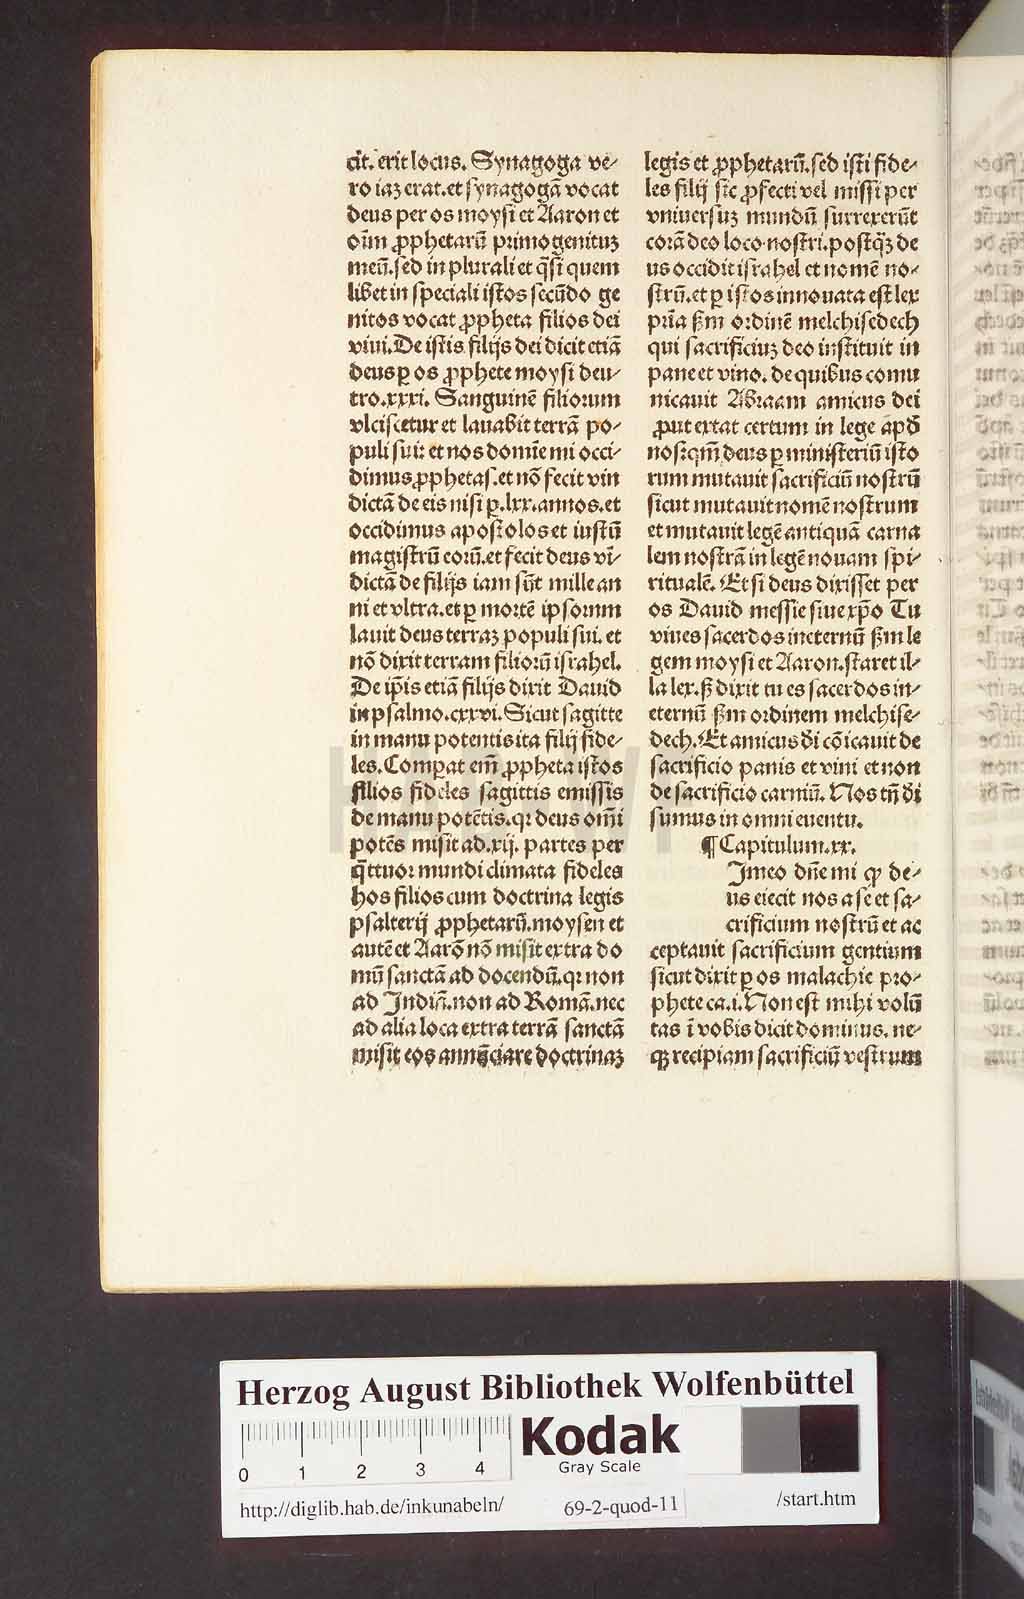 cit. erit locus. Synagoga ve-
ro iaz erat. et synagogā vocat
deus per os moysi et Aaron et
oīm ꝓphetarū primogenituz
meū. sed in plurali et q̄si quem
libet in speciali istos secūdo ge
nitos vocat ꝓpheta filios dei
viui. De istis filijs dei dicit etiā
deus ꝑ os ꝓphete moysi deu-
tro. xxxi. Sanguinē filiorum
vlciscetur et lauabit terrā po-
puli sui: et nos domīe mi occi-
dimus ꝓphetas. et nō fecit vin
dictā de eis nisi ꝑ. lxx. annos. et
occidimus apostolos et iustū
magistrū eorū. et fecit deus vī-
dictā de filijs iam sūt mille an
ni et vltra. et ꝑ mortē ipsorum
lauit deus terraz populi sui. et
nō dixit terram filiorū israhel.
De ip̄is etiā filijs dixit Dauid
in psalmo. cxxvi. Sicut sagitte
in manu potentis ita filij fide-
les. Comꝑat em̄ ꝓpheta istos
filios fideles sagittis emissis
de manu potētis. qr deus om̄i
potēs misit ad. xij. partes per
q̄ttuor mundi climata fideles
hos filios cum doctrina legis
psalterij ꝓphetarū. moysen et
autē et Aarō nō misit extra do
mū sanctā ad docendū. qr non
ad Indiā. non ad Romā. nec
ad alia loca extra terrā sanctā
misit eos annūciare doctrinaz
legis et ꝓphetarū. sed isti fide-
les filij sīc ꝓfecti vel missi per
vniuersuz mundū surrexerūt
corā deo loco nostri. postq̄z de
us occidit israhel et nomē no-
strū. et ꝑ istos innouata est lex
pria ẜm ordinē melchisedech
qui sacrificiuz deo instituit in
pane et vino. de quibus comu
nicauit Abraam amicus dei
ꝓut extat certum in lege apđ
nos: qm̄ deus ꝑ ministeriū isto
rum mutauit sacrificiū nostrū
sicut mutauit nomē nostrum
et mutauit legē antiquā carna
lem nostrā in legē nouam spi-
ritualē. Et si deus dixisset per
os Dauid messie siue xp̄o Tu
viues sacerdos in eternū ẜm le
gem moysi et Aaron. staret il-
la lex. ß dixit tu es sacerdos in-
eternū ẜm ordinem melchise-
dech. Et amicus di cōicauit de
sacrificio panis et vini et non
de sacrificio carniū. Nos tn̄ di
sumus in omni euentu.
¶ Capitulum. xx.
Imeo dn̄e mi ꝙ de-
us eiecit nos a se et sa-
crificium nostrū et ac
ceptauit sacrificium gentium
sicut dixit ꝑ os malachie pro-
phete ca. i. Non est mihi volū
tas ī vobis dicit dominus. ne-
qꝫ recipiam sacrificiū vestrum
HAB WF
Herzog August Bibliothek Wolfenbüttel
0 1 2 3 4
Kodak
Gray Scale
http://diglib.hab.de/inkunabeln/ 69-2-quod-11 /start.htm